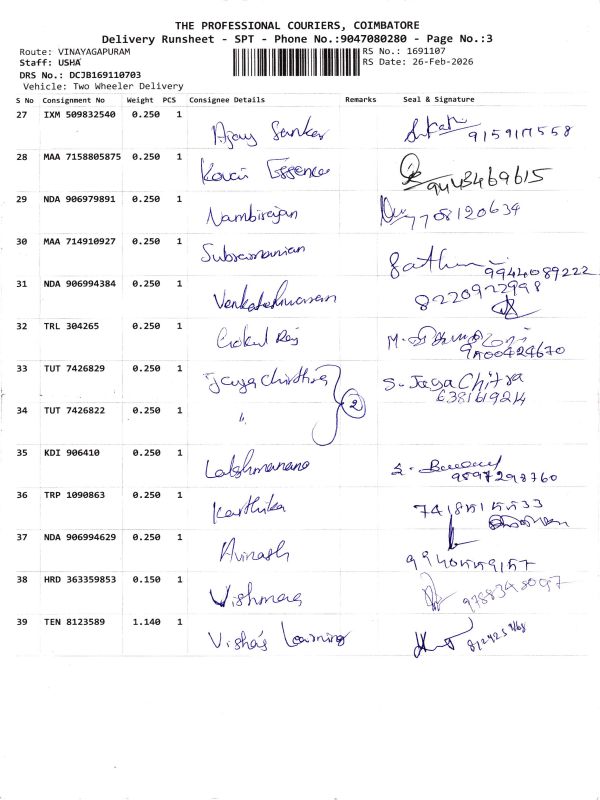 THE PROFESSIONAL COURIERS, COIMBATORE
Delivery Runsheet - SPT - Phone No.:9047080280 - Page No.:3
Route: VINAYAGAPURAM
Staff: USHA
DRS No.: DCJB169110703
Vehicle: Two Wheeler Delivery
RS No.: 1691107
RS Date: 26-Feb-2026
S No Consignment No Weight PCS Consignee Details Remarks Seal & Signature
27 IXM 509832540 0.250 1 Ajay Sankar
28 MAA 7158805875 0.250 1 Kovai Essence 9443469615
29 NDA 906979891 0.250 1 Nambirajan 7708120634
30 MAA 714910927 0.250 1 Subramanian 9944089222
31 NDA 906994384 0.250 1 Venkateshwaran 8220922998
32 TRL 304265 0.250 1 Gokul Raj
33 TUT 7426829 0.250 1 S. Jaga Chitra
34 TUT 7426822 0.250 1 " 2
35 KDI 906410 0.250 1 9597298760
36 TRP 1090863 0.250 1 Karthika
37 NDA 906994629 0.250 1 Avinash
38 HRD 363359853 0.150 1
39 TEN 8123589 1.140 1 Visha's Learning